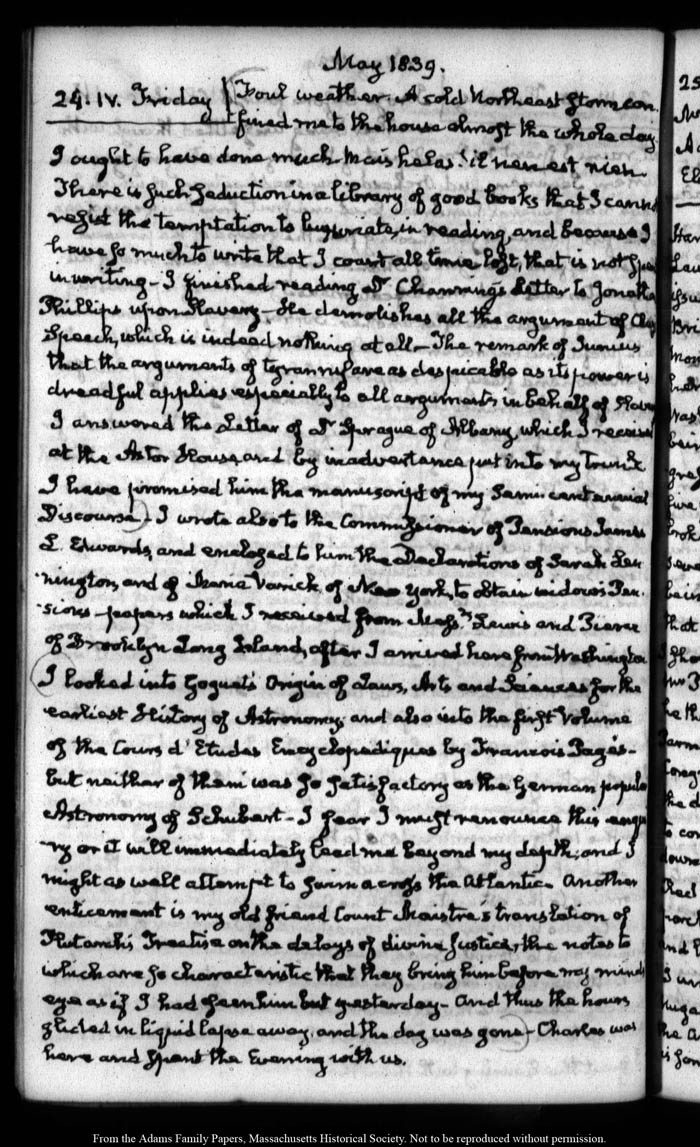 May 1839.
24. IV. Friday
Foul weather. A cold Northeast storm con-
fined me to the house almost the whole day
I ought to have done much Mais helas! il n'en est rien
There is such seduction in a library of good books that I cannot
resist the temptation to luxuriate in reading, and because I
have so much to write that I count all time lost, that is not spent
in writing - I finished reading Dr Channing's Letter to Jonathan
Phillips upon Slavery - He demolishes all the argument of Clay's
Speech, which is indeed nothing at all - The remark of Junius
that the arguments of tyranny are as despicable as its power is
dreadful applies especially to all arguments in behalf of Slavery
I answered the Letter of Dr Sprague of Albany which I received
at the Astor House, and by inadvertance put into my Trunk
I have promised him the manuscript of my Semi-centennial
Discourse - I wrote also to the Commissioner of Pensions James
L. Edwards, and enclosed to him the Declarations of Sarah Len-
nington, and of Varick, of New York, to obtain widow's Pen-
sions - papers which I received from Mess.rs Lewis and Pierce
of Brooklyn Long Island, after I arrived here from Washington
I looked into Goguet's Origin of Laws, Arts and Sciences for the
earliest History of Astronomy; and also into the first Volume
of the Cours d'Etudes Encyclopediques by Francois Pagès -
but neither of them was so satisfactory as the German popular
Astronomy of Schubert - I fear I must renounce this enqui-
ry or it will immediately lead me beyond my depth; and I
might as well attempt to swim across the Atlantic - Another
enticement is my old friend Count Maistre's translation of
Plutarch's Treatise on the delays of divine Justice, the notes to
which are so characteristic that they bring him before my mind's
eye as if I had seen him but yesterday - And thus the hours
glided in liquid lapse away, and the day was gone - Charles was
here and spent the Evening with us.
From the Adams Family Papers, Massachusetts Historical Society. Not to be reproduced without permission.